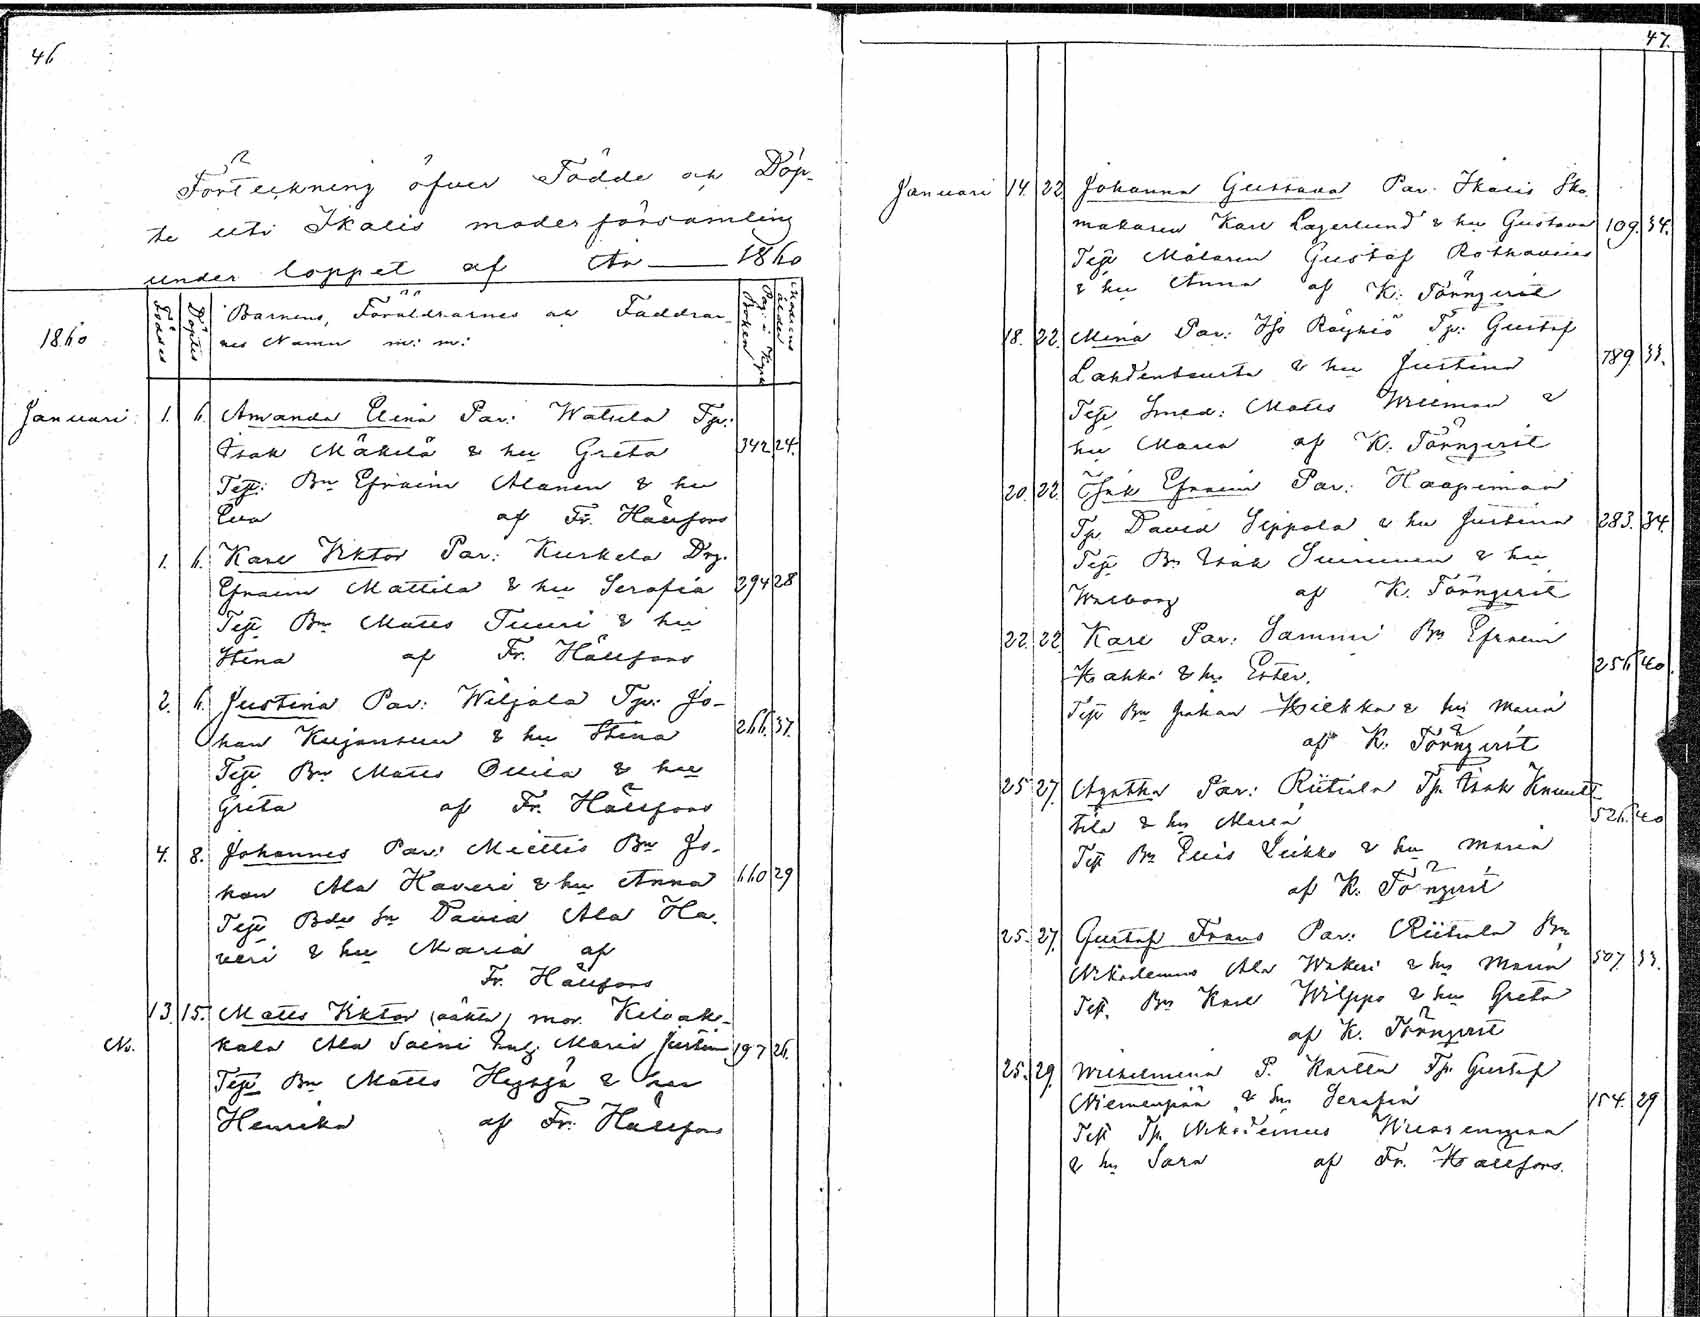 46
Förteckning öfver Födde och Döp-
te uti Ikalis moderförsamling
under loppet af År 1860
1860
Föddes
Döptes
Barnens, Föräldrarnes och Faddrar-
nes Namn m: m:
Pag: i Kyrk
Boken
Modrens
ålder
Januari
1. 6. Amanda Elina Par: Watsela Tp:
Isak Mäkelä & hu Greta 342 24.
Test: Bn Efraim Alanen & hu
Eva af Fr. Hällfors
1. 6. Karl Viktor Par: Kurkela Drg.
Efraim Mattila & hu Serafia 294 28
Test Bn Matts Tuuri & hu
Stina af Fr. Hällfors
2. 6. Justina Par: Wiljala Tp: Jo-
han Kujansuu & hu Stina 266. 37.
Test Bn Matts Ollila & hu
Greta af Fr. Hällfors
4. 8. Johannes Par: Miettis Bn Jo-
han Ala Haveri & hu Anna 660 29
Test Bde Sn David Ala Ha-
veri & hu Maria af
Fr. Hällfors
13. 15. Matts Viktor (oäkta) mor. Kilvak-
No. kala Ala Soini Maria Justina 197 26.
Test Bn Matts &
Henrika af Fr. Hällfors
47.
Januari 14. 22 Johanna Gustava Par. Ikalis Sko-
makaren Karl Lagerlund & hu Gustava 109. 34.
Test Målaren Gustaf Rothovius
& hu Anna af K. Törnqvist
18. 22. Mina Par: Röyhiö Tp: Gustaf
Lahdensuuta & hu Justina 789. 33.
Test Smed: Matts Willman &
hu Maria af K. Törnqvist
20. 22. Isak Efraim Par: Haapimaa
Tp David Seppälä & hu Justina 283. 34.
Test Bn Isak Suuronen & hu
Walborg af K. Törnqvist
22. 22. Karl Par: Sammi Bn Efraim
Kahko & hu Ester. 256 40.
Test Bn Johan & hu Maria
af K. Törnqvist
25 27. Agatha Par: Riitiala Tp. Isak Knuut-
tila & hu Maria 526. 40
Test Bn Elis Leikko & hu Maria
af K. Törnqvist
25. 27. Gustaf Frans Par: Riitiala Bn
Nikodemus Ala Wakeri & hu Maria 507. 33.
Test. Bn Karl Wilppo & hu Greta
af K. Törnqvist
25. 29. Wilhelmina P. Kartta Tp. Gustaf
Niemenpää & hu Serafia 154. 29
Test Tp. Nikodemus
& hu Sara af Fr. Hällfors.